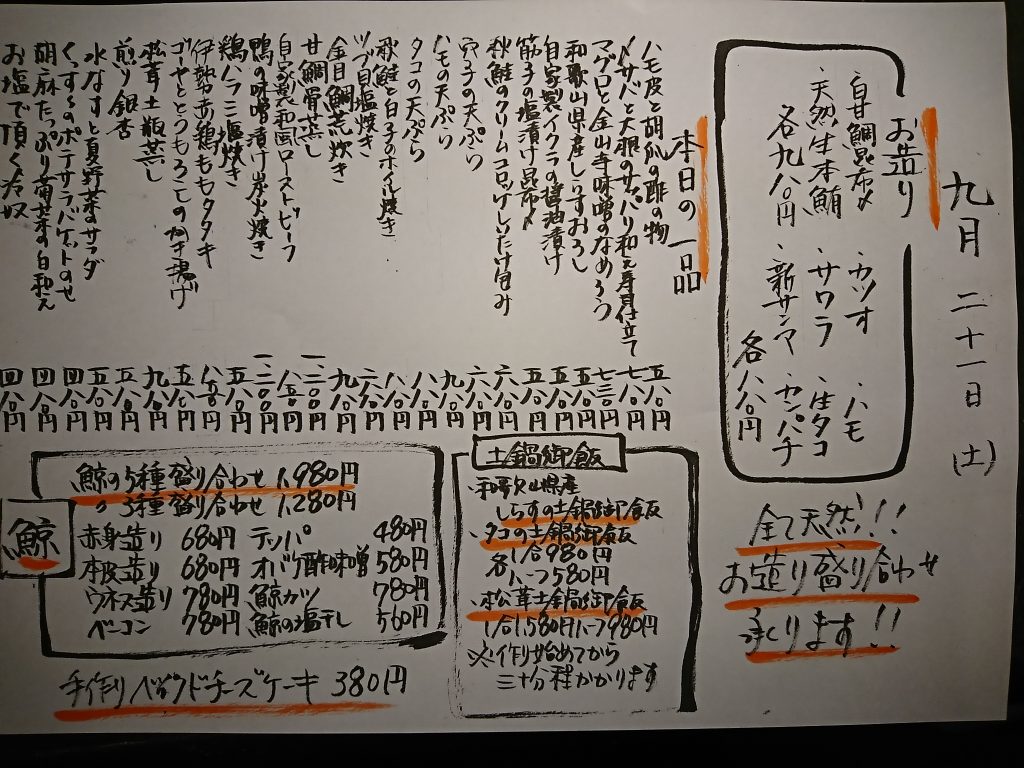 九月二十一日(土)
お造り
・白甘鯛昆布〆
・天然生本鮪
各九八〇円
・カツオ
・サワラ
・新サンマ
・ハモ
・生タコ
・カンパチ
各八八〇円
本日の一品
ハモ皮と胡瓜の酢の物 五八〇円
〆サバと大根のサッパリ和え寿司仕立て 七八〇円
マグロと金山寺味噌のなめろう 七三〇円
和歌山県産しらすおろし 五八〇円
自家製イクラの醤油漬け 五八〇円
筋子の塩漬け昆布〆 五八〇円
秋鮭のクリームコロッケしいたけ包み 六八〇円
穴子の天ぷら 六八〇円
ハモの天ぷら 九八〇円
タコの天ぷら 八八〇円
秋鮭と白子のホイル焼き 八八〇円
ツブ貝塩焼き 六八〇円
金目鯛荒炊き 九八〇円
甘鯛骨蒸し
自家製和風ローストビーフ
鴨の味噌漬け炭火焼き
鶏ハラミ塩焼き 五八〇円
伊勢赤鶏ももタタキ 八八〇円
ゴーヤととうもろこしのかき揚げ 五八〇円
松茸土瓶蒸し 九八〇円
煎り銀杏 五八〇円
水なすと夏野菜のサラダ 五八〇円
くんすいのポテサラバゲットのせ 四八〇円
胡麻たっぷり菊菜の白和え 四八〇円
お塩で頂く冷奴 四八〇円
全て天然!!
お造り盛り合わせ
承ります!!
土鍋御飯
・和歌山県産
しらすの土鍋御飯
・タコの土鍋御飯
各1合980円
ハーフ580円
・松茸土鍋御飯
1合1,580円ハーフ980円
※作り始めてから
三十分程かかります
鯨
鯨の5種盛り合わせ 1,980円
〃 3種盛り合わせ 1,280円
赤身造り 680円 テッパ 480円
本皮造り 680円 オバケ酢味噌 580円
ウネス造り 780円 鯨カツ 780円
ベーコン 780円 鯨の塩干し 560円
手作りベイクドチーズケーキ 380円